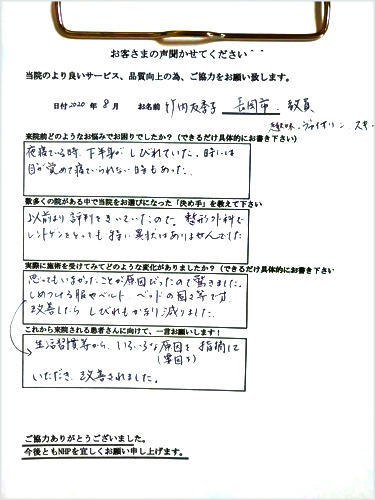 お客さまの声聞かせてください^ ^
当院のより良いサービス、品質向上の為、ご協力をお願い致します。
日付 2020 年 8 月 お名前 竹内友季子 長岡市、教員
趣味、ヴァイオリン、スキー
来院前どのようなお悩みでお困りでしたか？（できるだけ具体的にお書き下さい）
夜寝ている時、下半身がしびれていた。時には
目が覚めて寝ていられない時もあった。
数多くの院がある中で当院をお選びになった「決め手」を教えて下さい
以前より評判をきいていたので。整形外科で
レントゲンをとっても特に異状はありませんでした
実際に施術を受けてみてどのような変化がありましたか？（できるだけ具体的にお書き下さい
思ってもいなかったことが原因だったので驚きました。
しめつける服やベルト、ベッドの固さ等です。
改善したら しびれもかなり減りました。
これから来院される患者さんに向けて、一言お願いします！
生活習慣等から、いろいろな原因を指摘して
（要因を）
いただき、改善されました。
ご協力ありがとうございました。
今後ともNHPを宜しくお願い申し上げます。